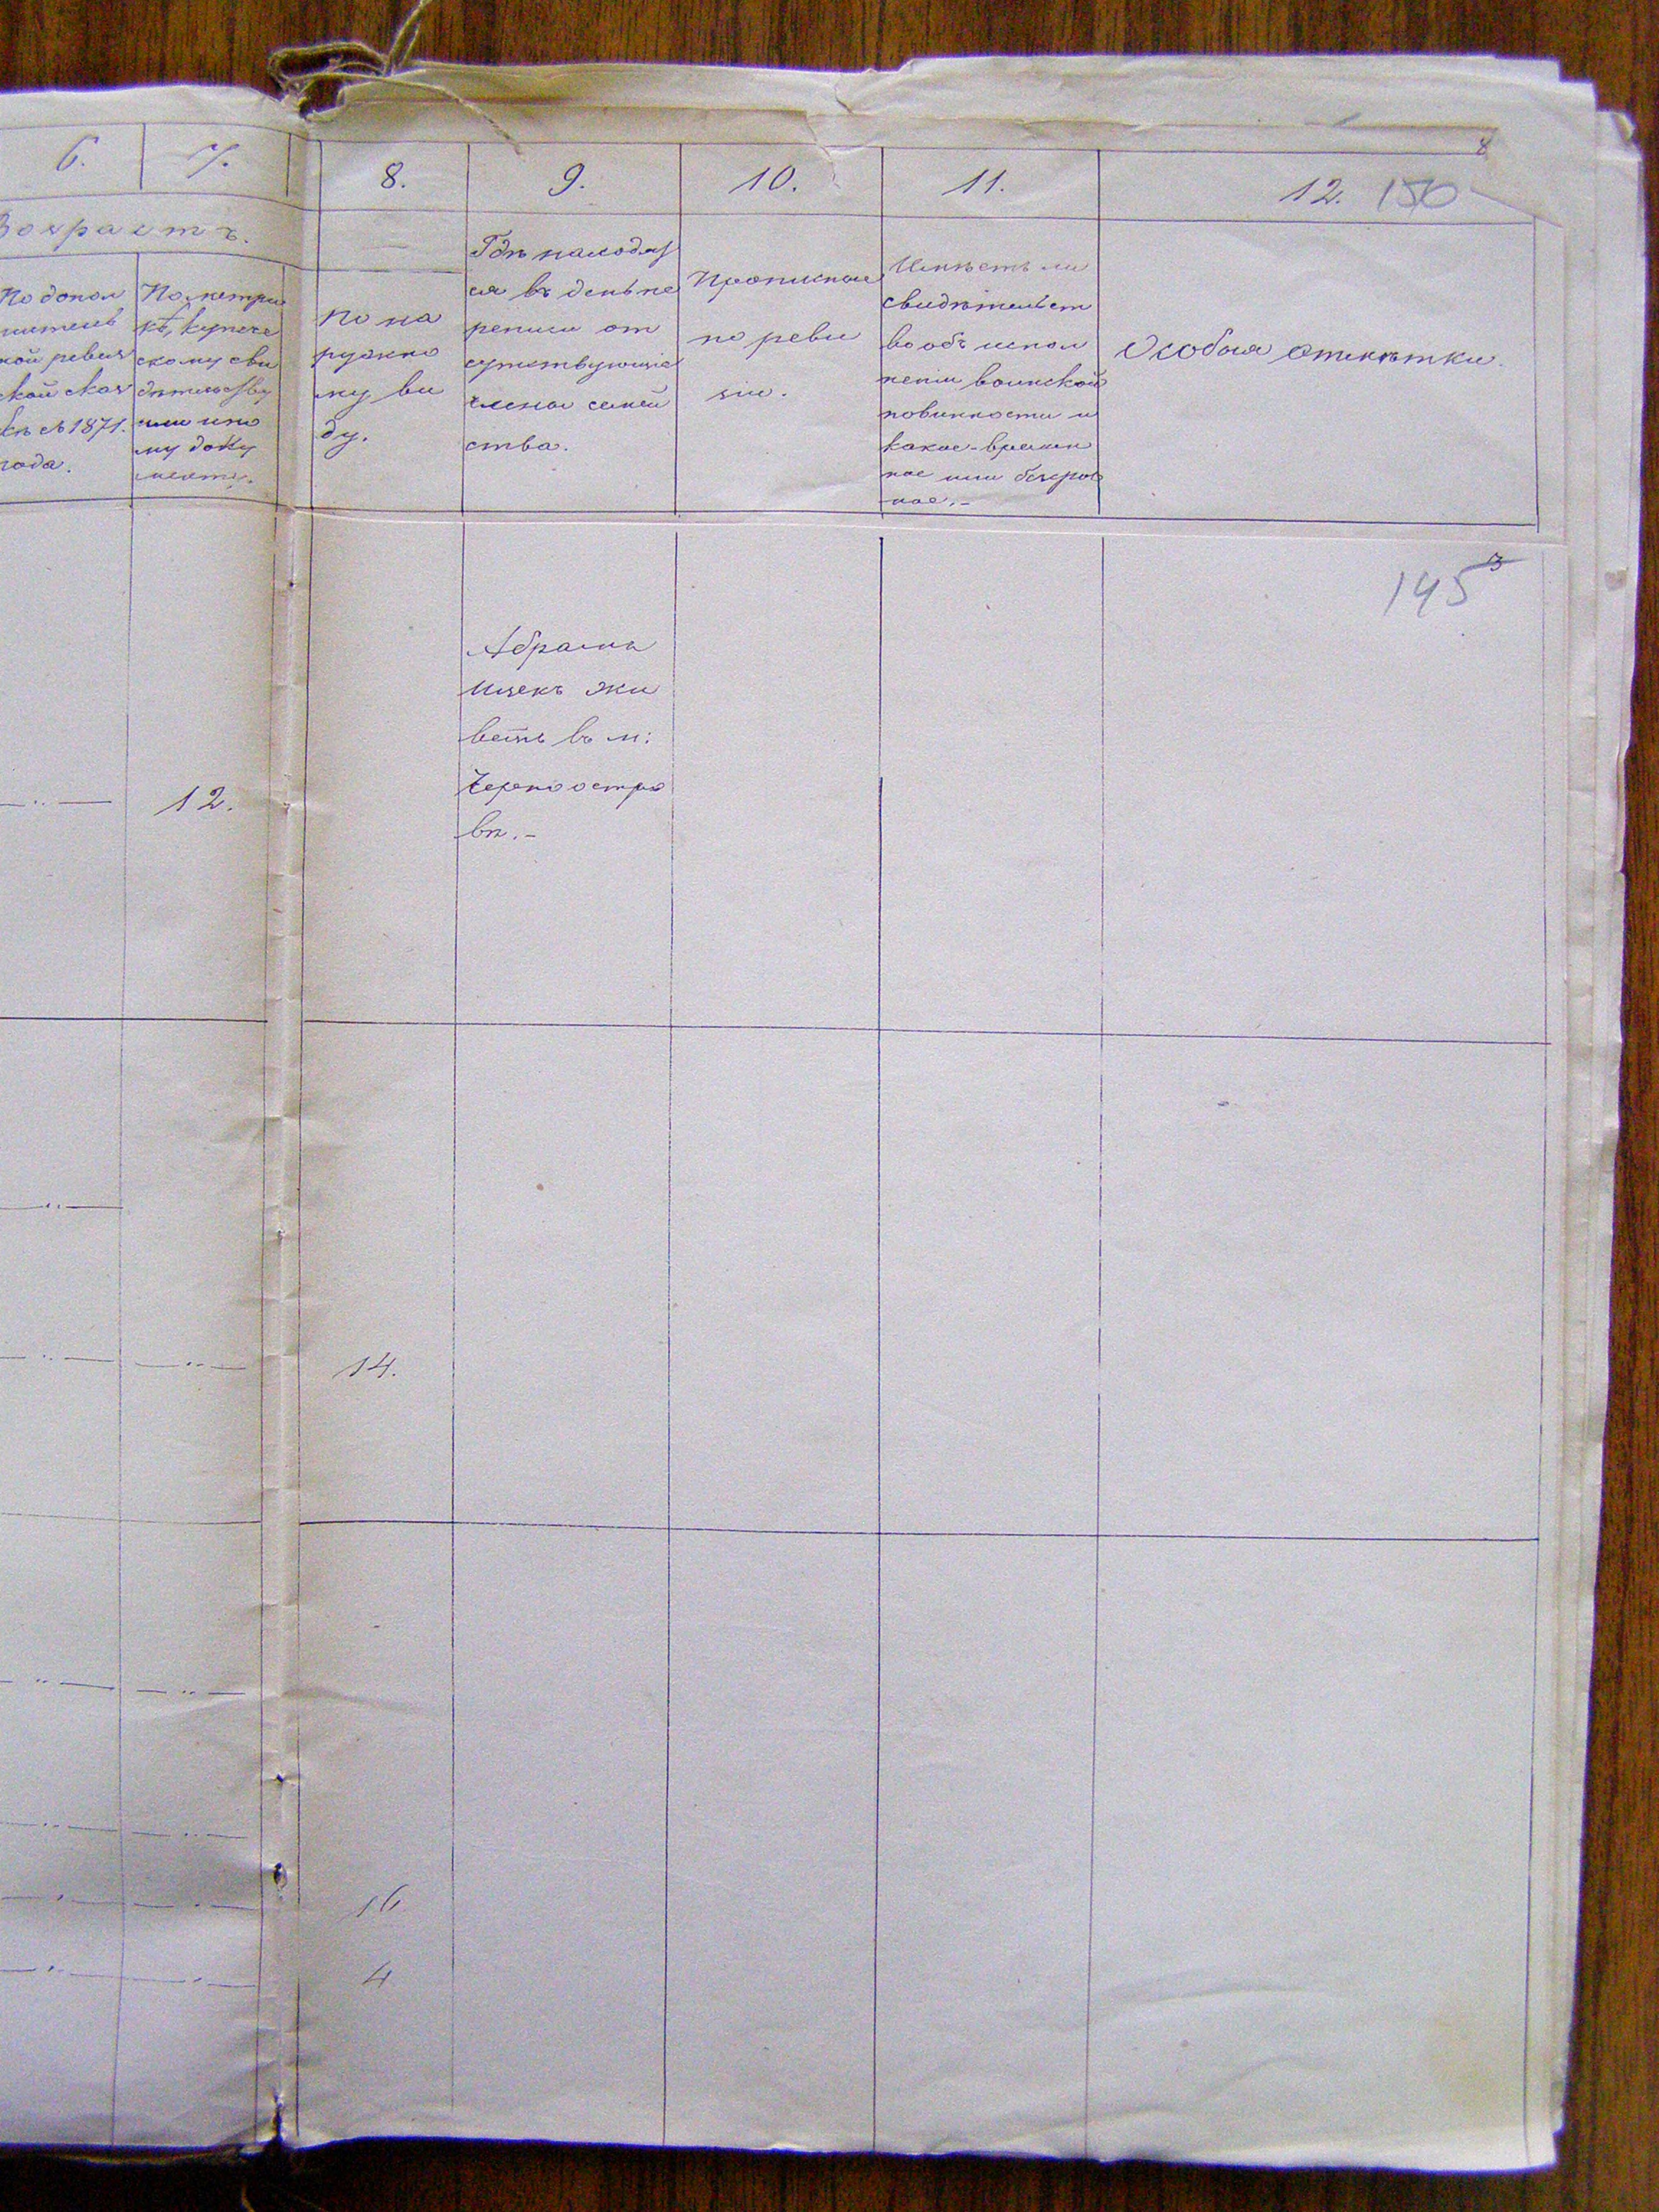 8
6.
7.
8.
9.
10.
11.
12.
150
Возрастъ.
По допол
нитель
ной ревиз
ской сказ
кѣ съ 1871.
года.
По метри
кѣ, купече
скому сви
дѣтельству
или ино
му доку
менту.
По на
ружно
му ви
ду.
Гдѣ находят
ся въ день пе
реписи от
сутствующіе
члены семей
ства.
Прописные
по реви
зіи.
Имѣетъ ли
свидѣтельст
во объ испол
неніи воинской
повинности и
какое-времен
ное или безсроч
ное.-
Особыя отмѣтки.
3
145
Абрамъ
Ицекъ жи
ветъ въ м:
Черноостро
вѣ.-
12.
14.
16
4